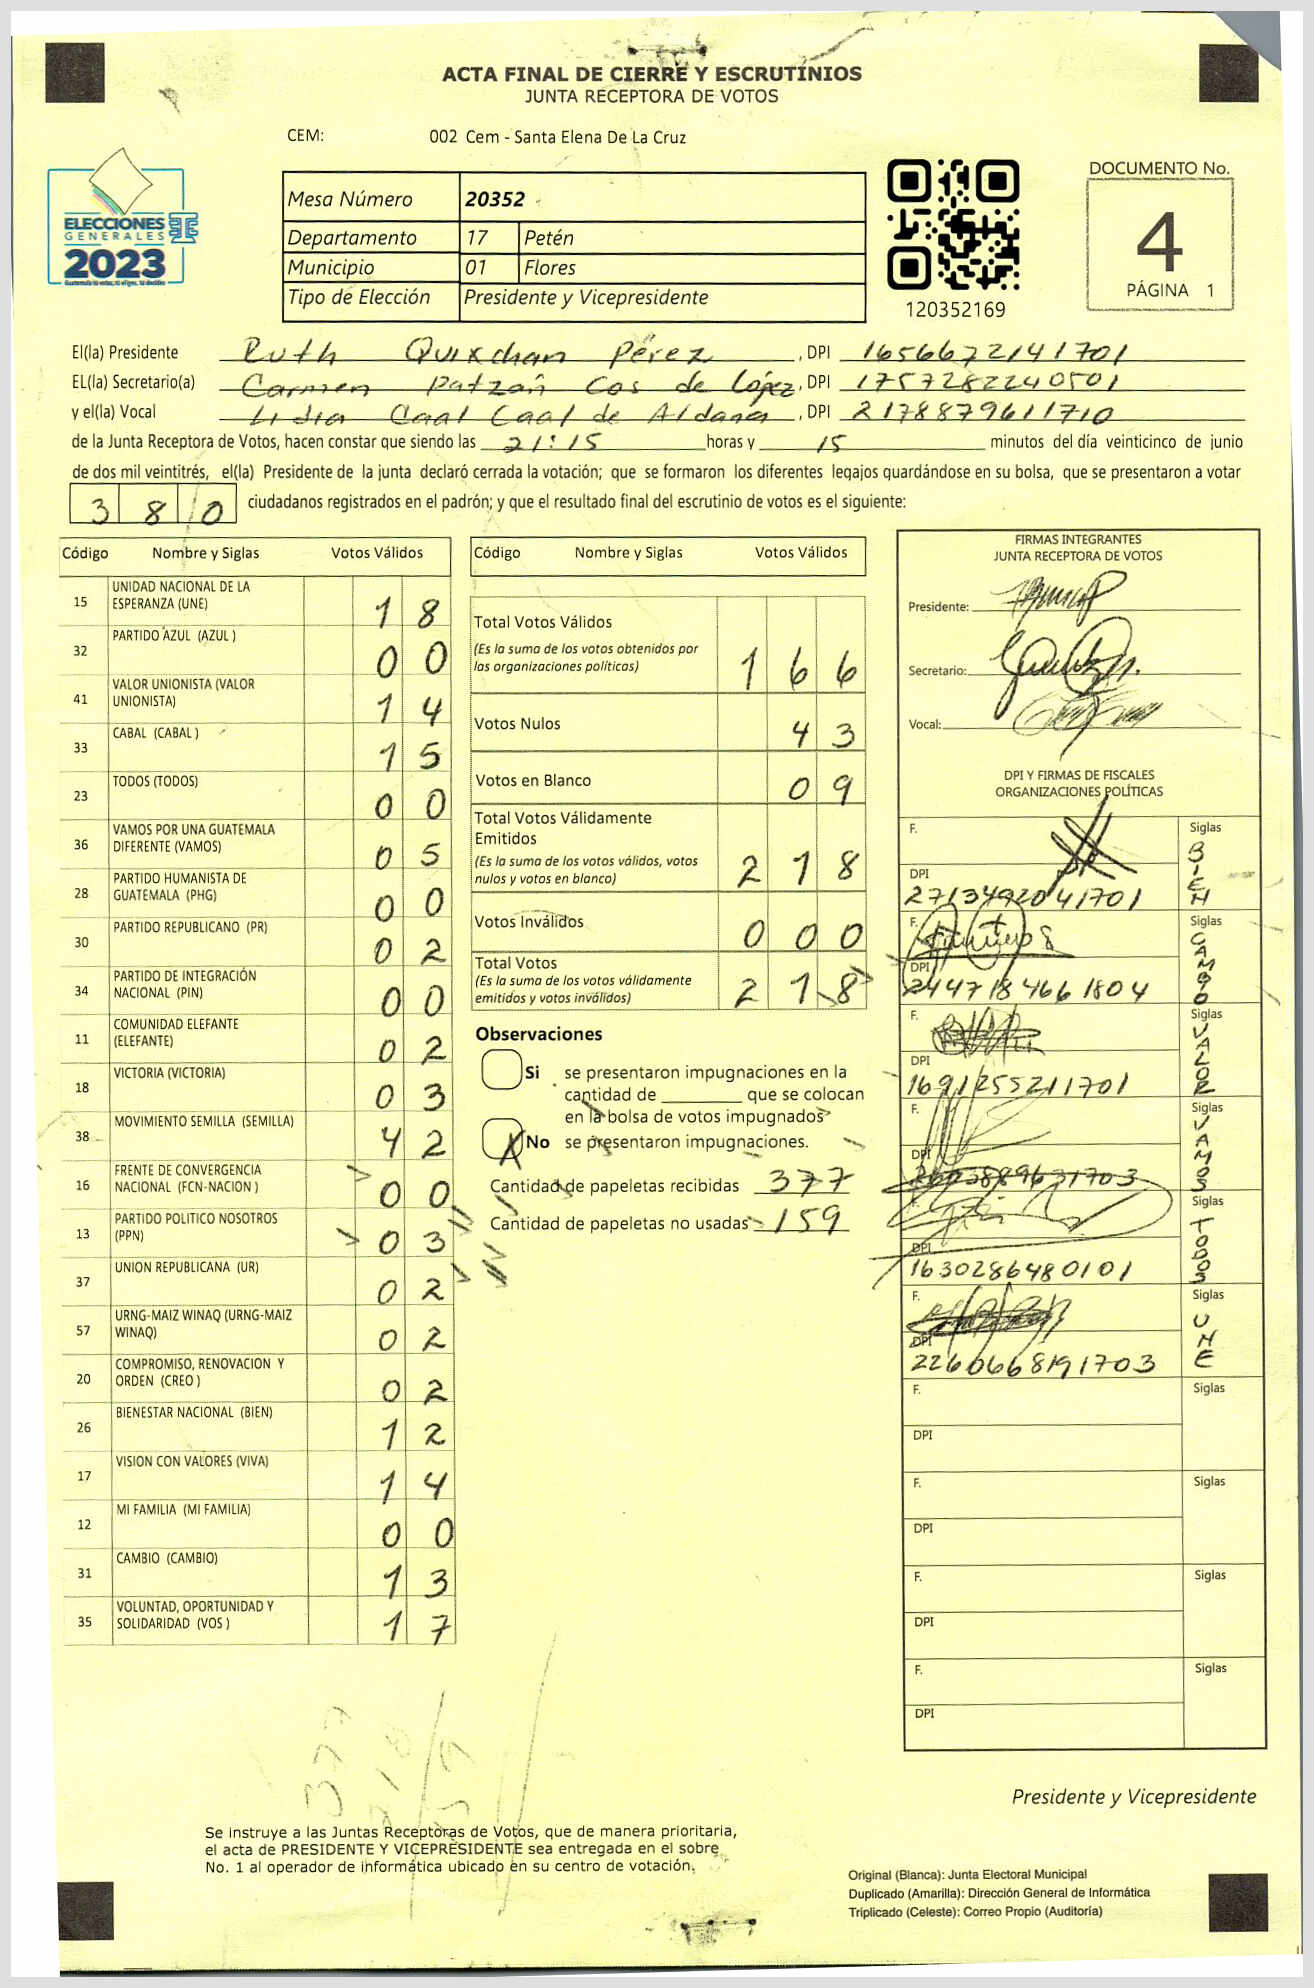 ACTA FINAL DE CIERRE Y ESCRUTINIOS
JUNTA RECEPTORA DE VOTOS
CEM: 002 Cem - Santa Elena De La Cruz
ELECCIONES
GENERALES
2023
Mesa Número 20352
Departamento 17 Petén
Municipio 01 Flores
Tipo de Elección Presidente y Vicepresidente
120352169
DOCUMENTO No.
4
PÁGINA 1
El(la) Presidente Ruth Quixchan Pérez, DPI 1656672141701
EL(la) Secretario(a) Carmen Patzán Cos de López, DPI 1757282240501
y el(la) Vocal Lidia Caal Caal de Aldana, DPI 2178879611710
de la Junta Receptora de Votos, hacen constar que siendo las 21:15 horas y 15 minutos del día veinticinco de junio
de dos mil veintitrés, el(la) Presidente de la junta declaró cerrada la votación; que se formaron los diferentes legajos guardándose en su bolsa, que se presentaron a votar
380 ciudadanos registrados en el padrón; y que el resultado final del escrutinio de votos es el siguiente:
Código Nombre y Siglas Votos Válidos
15 UNIDAD NACIONAL DE LA
ESPERANZA (UNE) 18
32 PARTIDO AZUL (AZUL ) 00
41 VALOR UNIONISTA (VALOR
UNIONISTA) 14
33 CABAL (CABAL ) 15
23 TODOS (TODOS) 00
36 VAMOS POR UNA GUATEMALA
DIFERENTE (VAMOS) 05
28 PARTIDO HUMANISTA DE
GUATEMALA (PHG) 00
30 PARTIDO REPUBLICANO (PR) 02
34 PARTIDO DE INTEGRACIÓN
NACIONAL (PIN) 00
11 COMUNIDAD ELEFANTE
(ELEFANTE) 02
18 VICTORIA (VICTORIA) 03
38 MOVIMIENTO SEMILLA (SEMILLA) 42
16 FRENTE DE CONVERGENCIA
NACIONAL (FCN-NACION ) 00
13 PARTIDO POLITICO NOSOTROS
(PPN) 03
37 UNION REPUBLICANA (UR) 02
57 URNG-MAIZ WINAQ (URNG-MAIZ
WINAQ) 02
20 COMPROMISO, RENOVACION Y
ORDEN (CREO ) 02
26 BIENESTAR NACIONAL (BIEN) 12
17 VISION CON VALORES (VIVA) 14
12 MI FAMILIA (MI FAMILIA) 00
31 CAMBIO (CAMBIO) 13
35 VOLUNTAD, OPORTUNIDAD Y
SOLIDARIDAD (VOS ) 17
Código Nombre y Siglas Votos Válidos
Total Votos Válidos
(Es la suma de los votos obtenidos por
las organizaciones políticas) 166
Votos Nulos 43
Votos en Blanco 09
Total Votos Válidamente
Emitidos
(Es la suma de los votos válidos, votos
nulos y votos en blanco) 218
Votos Inválidos 000
Total Votos
(Es la suma de los votos válidamente
emitidos y votos inválidos) 218
Observaciones
Si se presentaron impugnaciones en la
cantidad de ________ que se colocan
en la bolsa de votos impugnados
X No se presentaron impugnaciones.
Cantidad de papeletas recibidas 377
Cantidad de papeletas no usadas 159
FIRMAS INTEGRANTES
JUNTA RECEPTORA DE VOTOS
Presidente:
Secretario:
Vocal:
DPI Y FIRMAS DE FISCALES
ORGANIZACIONES POLÍTICAS
F. Siglas BIEN
DPI 2713492041701
F. Siglas CAMBIO
DPI 2447184661804
F. Siglas VALOR
DPI 1691255211701
F. Siglas VAMOS
DPI
F. Siglas TODOS
DPI 1630286480101
F. Siglas UNE
DPI 2260668191703
F. Siglas
DPI
F. Siglas
DPI
F. Siglas
DPI
F. Siglas
DPI
377
218
159
Presidente y Vicepresidente
Se instruye a las Juntas Receptoras de Votos, que de manera prioritaria,
el acta de PRESIDENTE Y VICEPRESIDENTE sea entregada en el sobre
No. 1 al operador de informática ubicado en su centro de votación.
Original (Blanca): Junta Electoral Municipal
Duplicado (Amarilla): Dirección General de Informática
Triplicado (Celeste): Correo Propio (Auditoría)